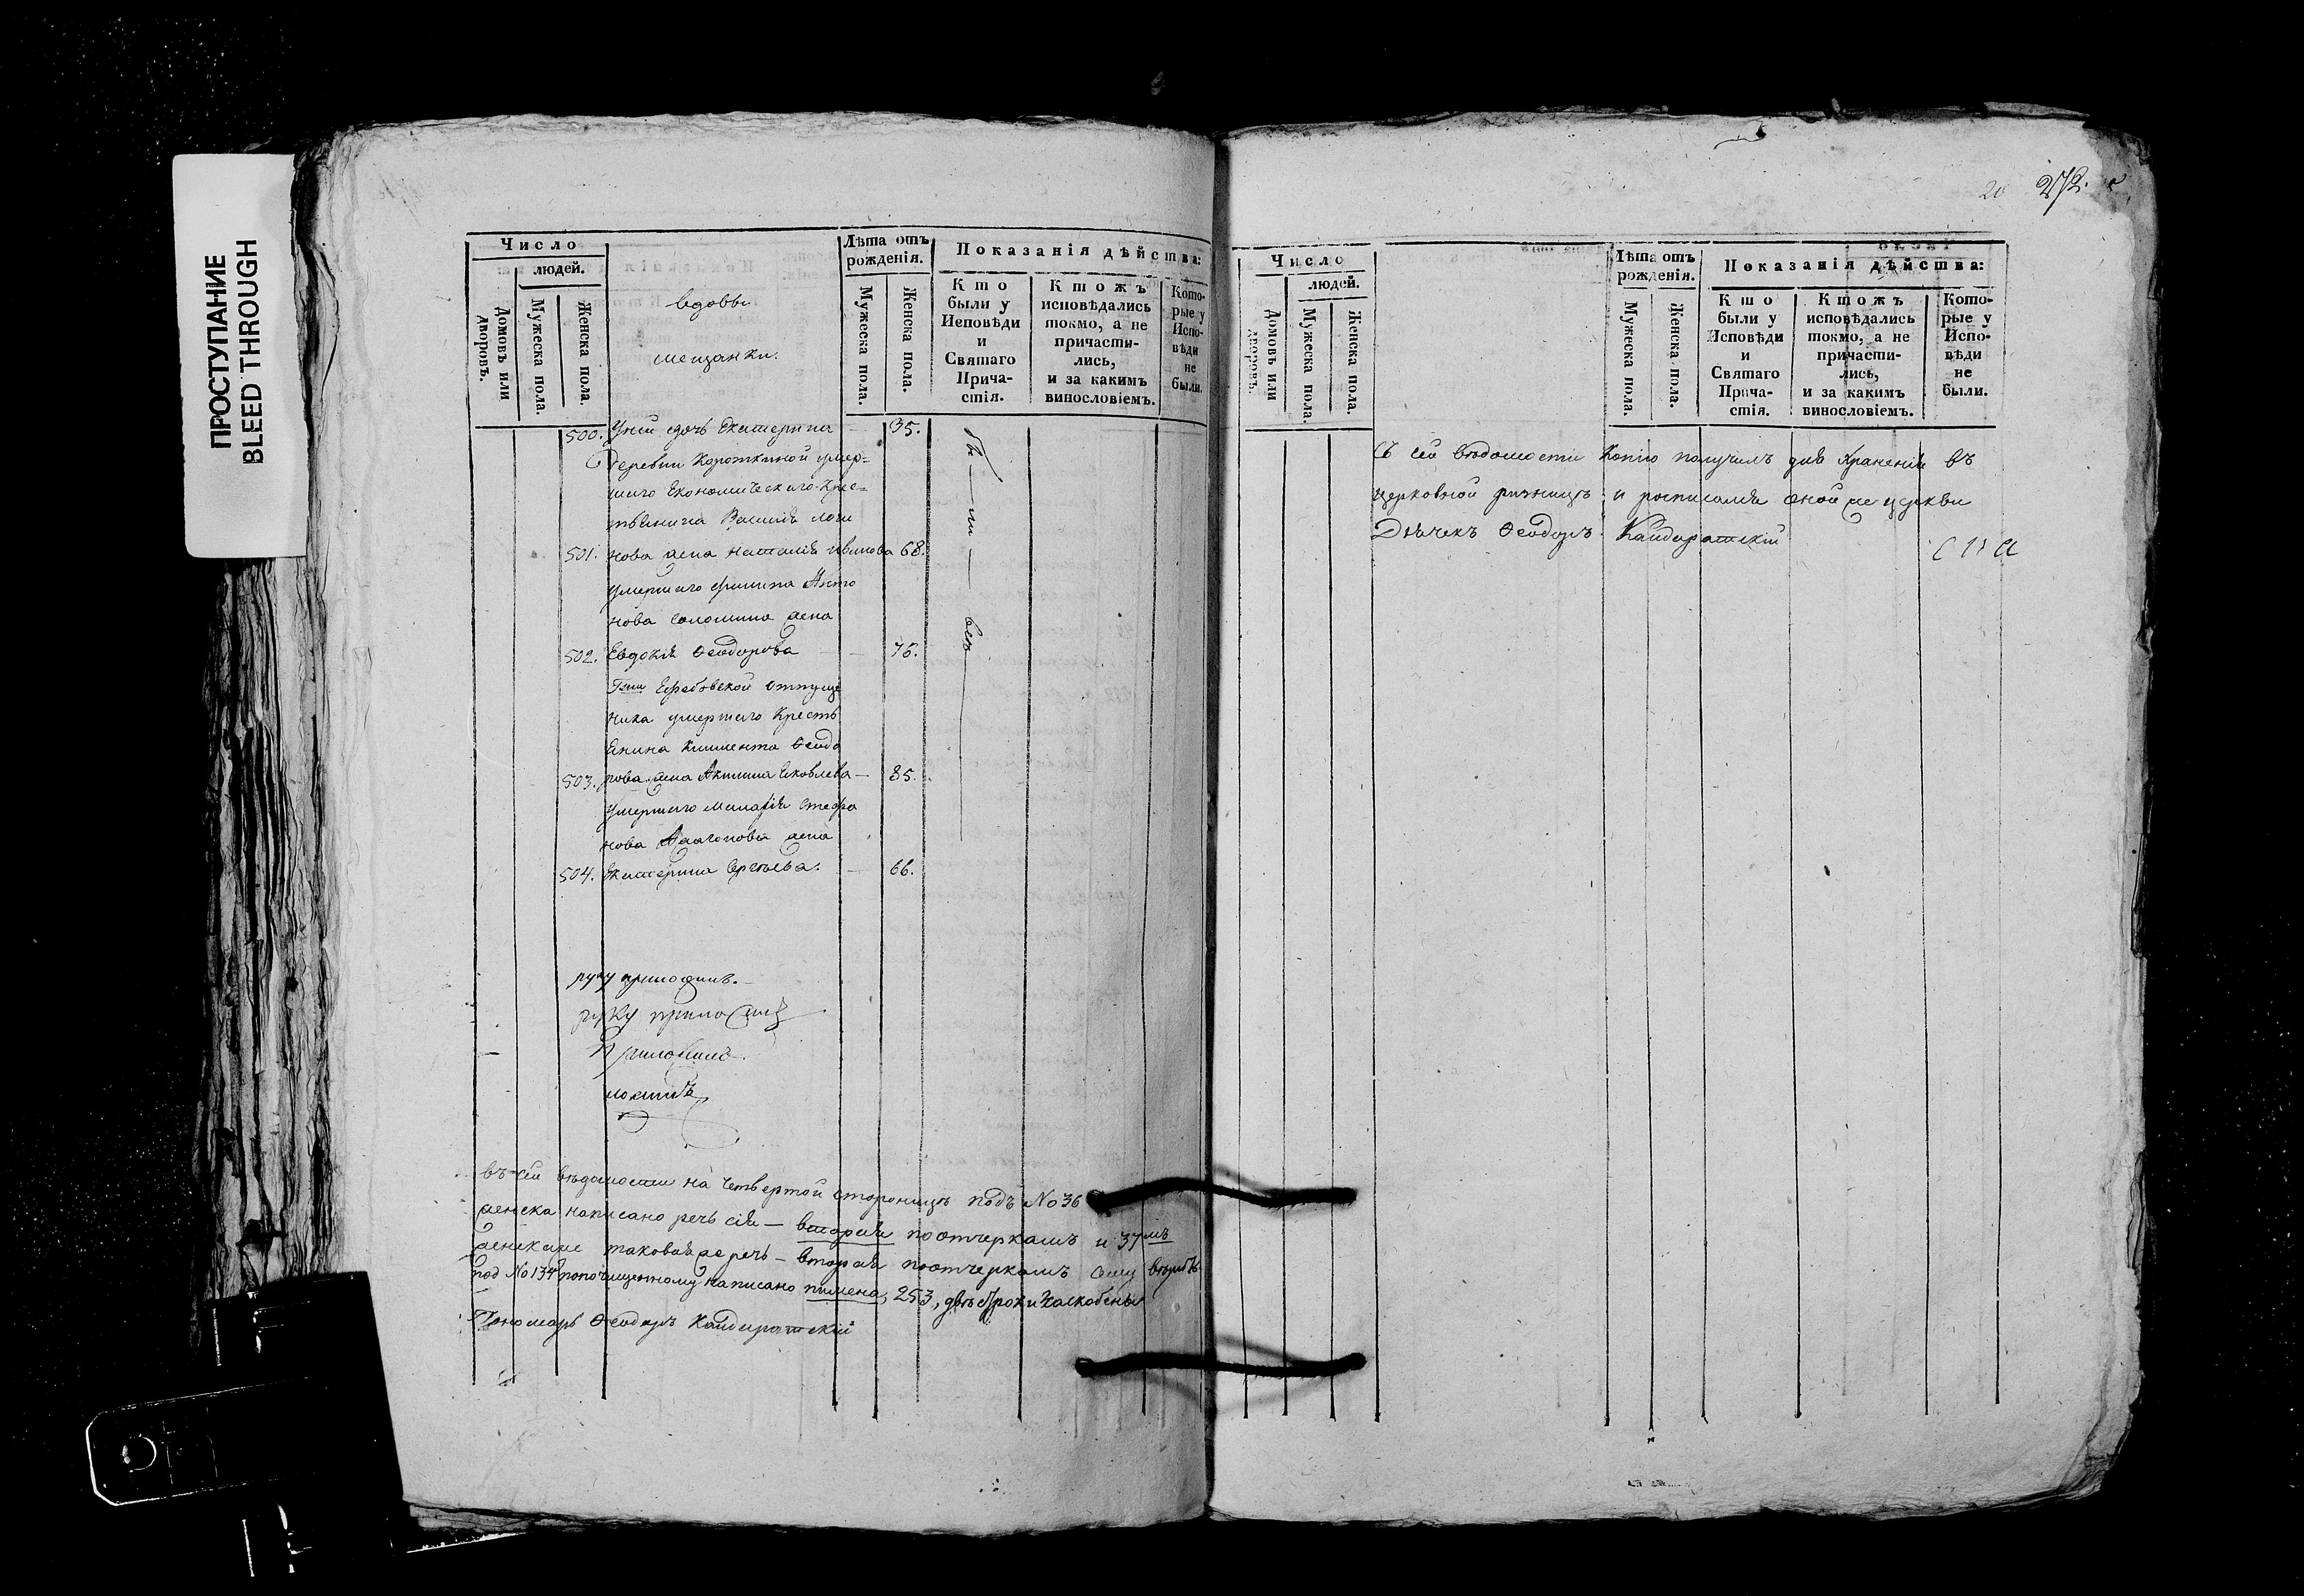 ПРОСТУПАНИЕ
BLEED THROUGH
Число
людей.
Домовъ или дворовъ.
Мужеска пола.
Женска пола.
вдовы
мещанки.
Лѣта отъ рожденія.
Мужеска пола.
Женска пола.
Показанія дѣйства:
Кто были у Исповѣди и Святаго Прича-стія.
Ктожъ исповѣдались токмо, а не причасти-лись, и за какимъ винословіемъ.
Кото-рые у Испо-вѣди не были.
500. Уней дочь Екатерина — 35.
Деревни Короткиной умер=
шаго Економическаго Крес=
тьянина Василія Логи
501. нова жена Наталія Иванова 68.
умершаго Филипа Анто
нова Соломина жена
502. Евдокія Ѳеодорова — — 76.
Гжи Ербовской отпуще
ника умершаго Кресть
янина Климента Ѳеодо
503. рова жена Акилина Яковлева — 85.
Умершаго Стефа
нова жена
504. Екатерина Сергѣева. — 66.
бы — ли — всѣ
руку приложилъ.
руку приложилъ
приложилъ.
ложилъ
въ сей вѣдомости на четвертой стороницѣ подъ № 36
женска написано речь сія — вторая поотчеркамъ и 37мъ
женскаже таковаяже речь — вторая поотчеркамъ сему вѣрить
под № 134 попочищенному написано пимена, 253, двѣ строки заскоблены
Пономарь Ѳеодоръ Кандаратскій
272.
Число
людей.
Домовъ или дворовъ.
Мужеска пола.
Женска пола.
Лѣта отъ рожденія.
Мужеска пола.
Женска пола.
Показанія дѣйства:
Кто были у Исповѣди и Святаго Прича-стія.
Ктожъ исповѣдались токмо, а не причасти-лись, и за какимъ винословіемъ.
Кото-рые у Испо-вѣди не были.
Съ сей вѣдомости копію получилъ для храненія въ
церковной ризницѣ и росписался оной же церкви
Дьячекъ Ѳеодоръ Кандаратскій